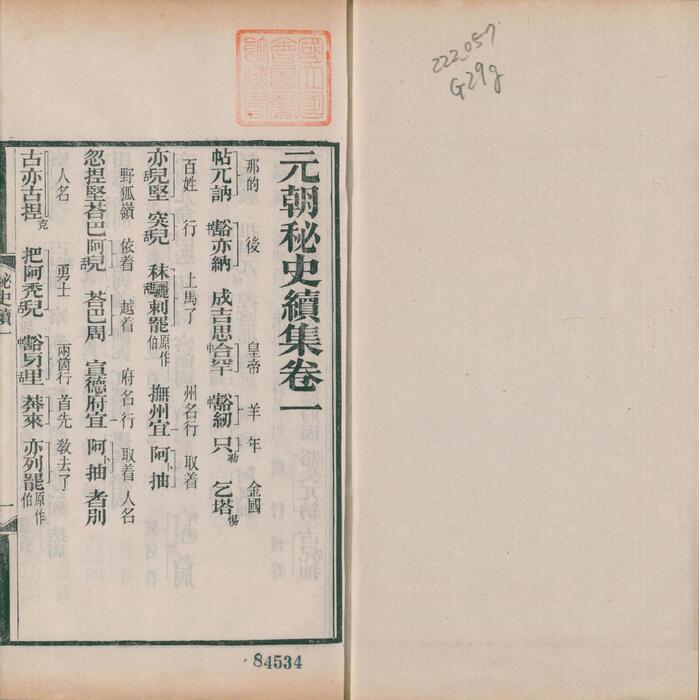 222.057
G29g
國立中
央圖書
館藏書
元朝秘史續集卷一
那的 後 皇帝 羊 年 金國
帖兀訥 中豁亦納 成吉思中合罕 中豁紉 只勒 乞塔惕
百姓 行 上馬了 州名行 取着
亦舌兒堅 突舌兒 秣舌驪剌罷原作伯 撫州宜 阿卜抽
野狐嶺 依着 越着 府名行 取着 人名
忽捏堅荅巴阿舌兒 荅巴周 宣德府宜 阿卜抽 者別
人名 勇士 兩箇行 首先 教去了
古亦古捏克 把阿禿舌兒 中豁牙舌里 莽來 亦列罷原作伯
秘史續一
一
84534